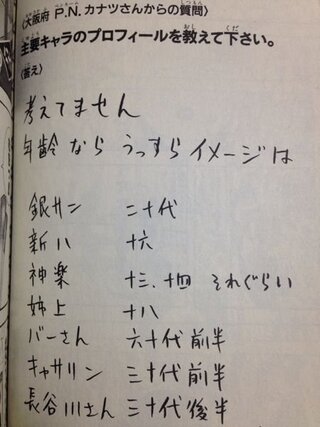 〈大阪府 P.N. カナツさんからの質問〉
主要キャラのプロフィールを教えて下さい。
〈答え〉
考えてません
年齢なら うっすら イメージは
銀サン 二十代
新八 十六
神楽 十三、十四 それぐらい
姉上 十八
バーさん 六十代前半
キャサリン 三十代前半
長谷川さん 三十代後半